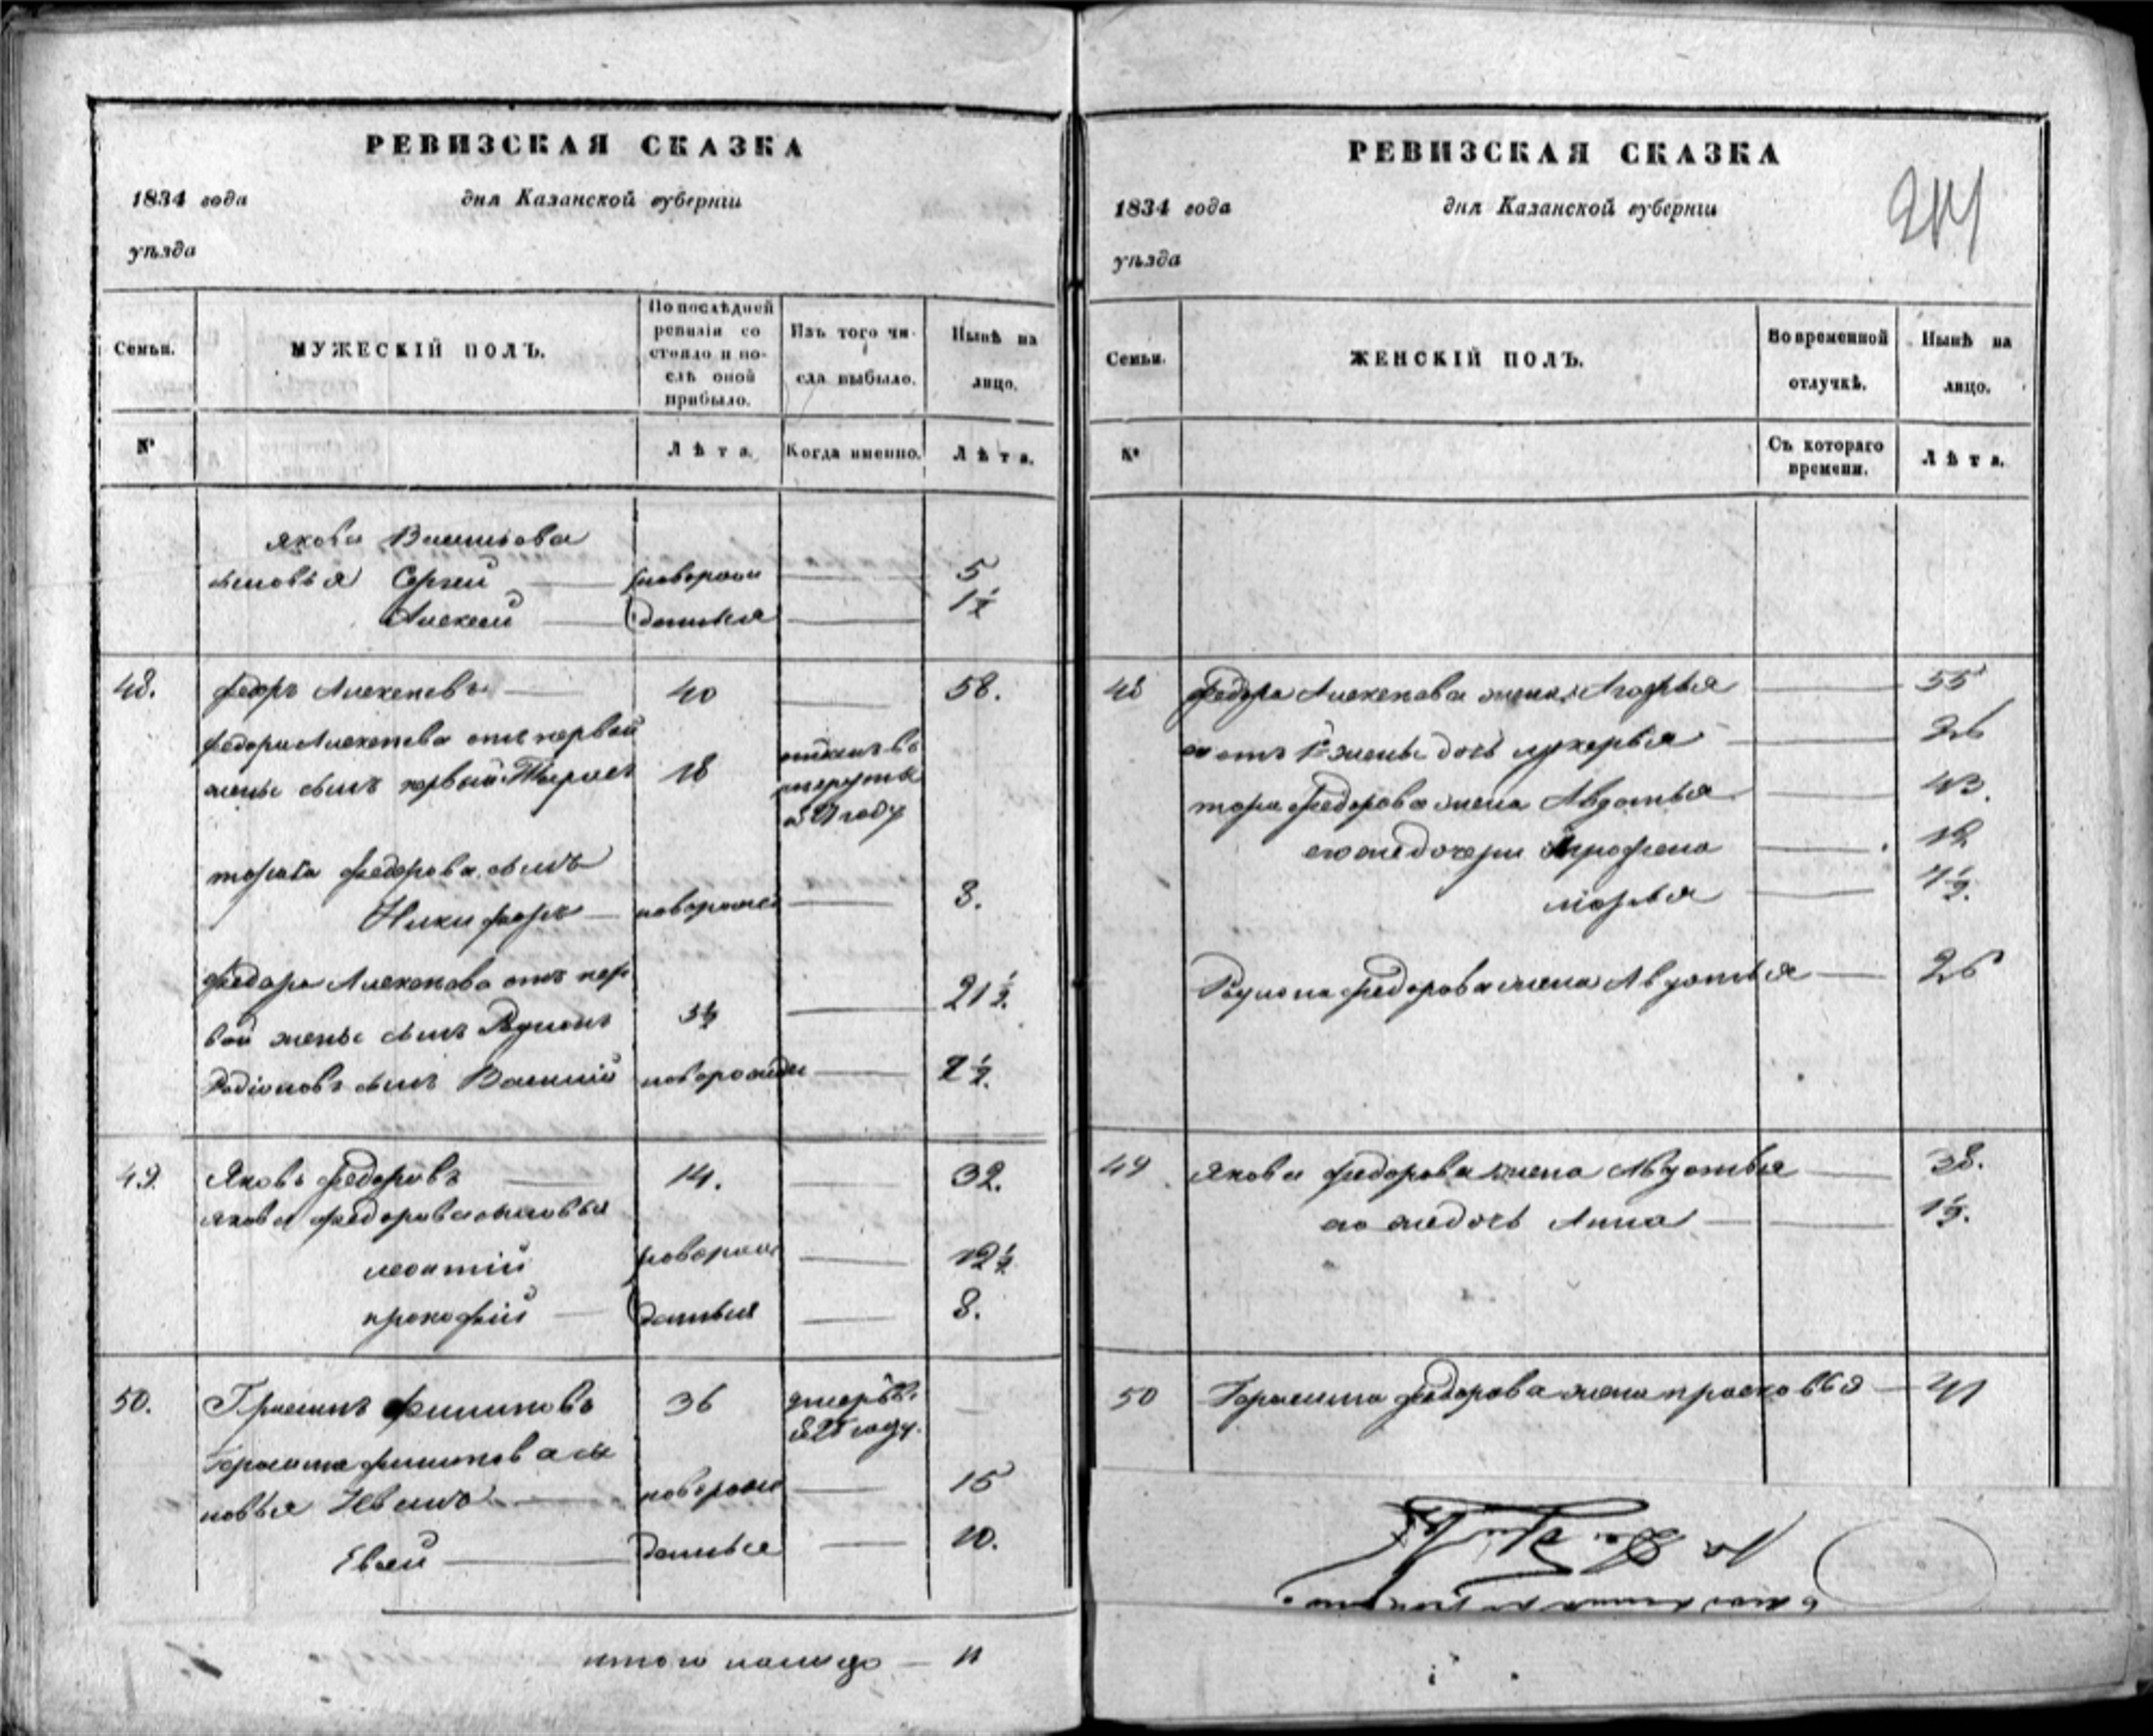 РЕВИЗСКАЯ СКАЗКА
1834 года дня Казанской губерніи
уѣзда
Семьи. МУЖЕСКІЙ ПОЛЪ. По послѣдней ревизіи состояло и послѣ оной прибыло. Изъ того числа выбыло. Нынѣ на лицо.
№ Лѣта. Когда именно. Лѣта.
Якова Васильева
сыновья Сергей новорож 5
Алексей денныя 1½
48. Федоръ Алексеевъ 40 58.
Федора Алексеева отъ первой
жены сынъ первый 18
году
Федорова сынъ
Никифоръ новорожде 8.
Федора Алексеева отъ пер
вой жены сынъ Родионъ 3½ 21½.
Родіоновъ сынъ Василий новорожден 2½.
49. Яковъ Федоровъ 14. 32.
Якова Федорова сыновья
леонтій новорож 12½
прокофій денныя 8.
50. Филиповъ 36 умеръ въ
825 году.
Филипова сы
новья Иванъ новорож 15
Евсей денныя 10.
итого налицо 11
РЕВИЗСКАЯ СКАЗКА
1834 года дня Казанской губерніи
уѣзда
Семьи. ЖЕНСКІЙ ПОЛЪ. Во временной отлучкѣ. Нынѣ на лицо.
№ Съ котораго времени. Лѣта.
48 Федора Алексеева жена 55
ево отъ 1й жены дочь лукерья 26
Федорова жена Авдотья 43.
его же дочери 12
марья 4½.
Родиона Федорова жена Авдотья 26
49 Якова Федорова жена Авдотья 38.
его же дочь Анна 1½.
50 Федорова жена прасковья 41